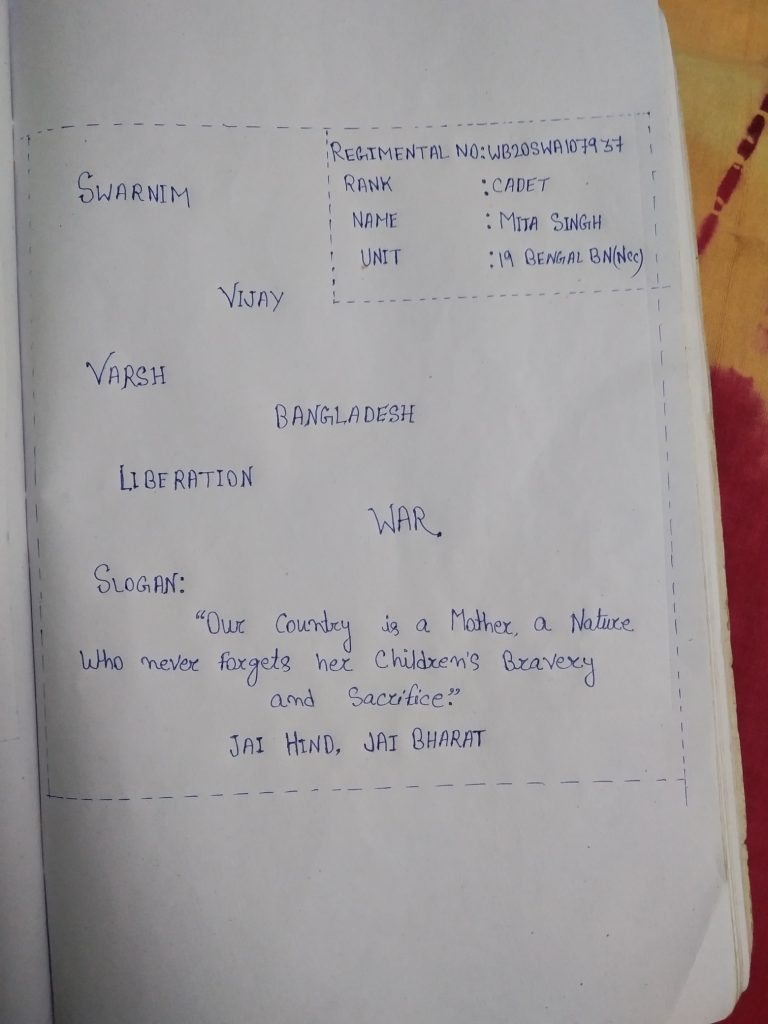 REGIMENTAL NO:WB20SWA107937
RANK :CADET
NAME : MITA SINGH
UNIT :19 BENGAL BN(NCC)
SWARNIM
VIJAY
VARSH
BANGLADESH
LIBERATION
WAR.
SLOGAN:
"Our Country is a Mother, a Nature
Who never forgets her Children's Bravery
and Sacrifice."
JAI HIND, JAI BHARAT